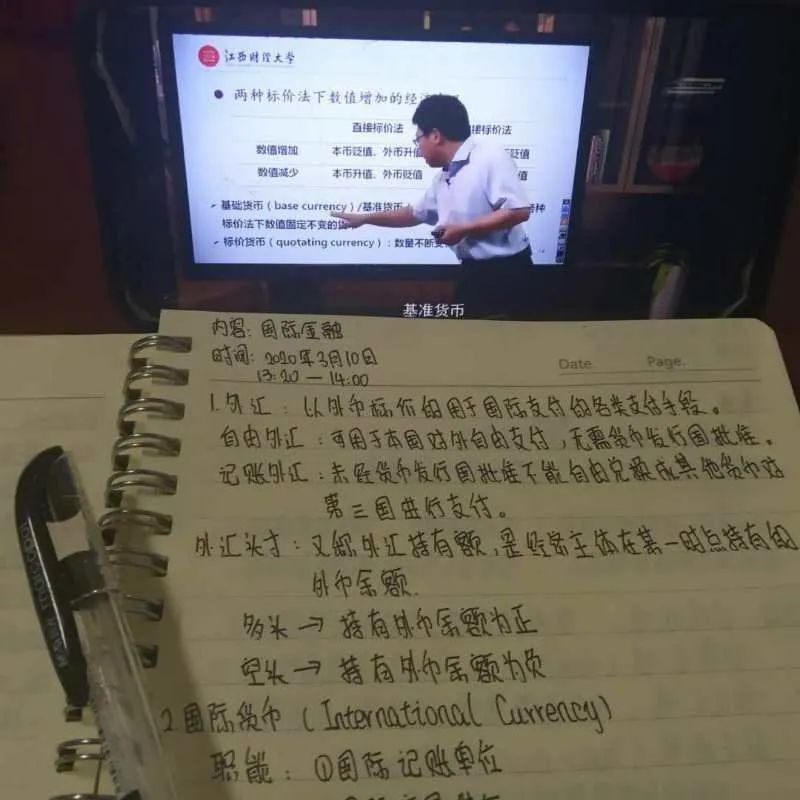 江西财经大学
● 两种标价法下数值增加的经济
直接标价法 接标价法
数值增加 本币贬值、外币升值 贬值
数值减少 本币升值、外币贬值 值
基础货币（base currency）/基准货币 种
标价法下数值固定不变的货币
标价货币（quotating currency）：数量不断变
基准货币
内容：国际金融
时间：2020年3月10日
13:20 — 14:00
Date Page.
1.外汇：以外币标价的用于国际支付的各类支付手段。
自由外汇：可用于本国对外自由支付，无需货币发行国批准。
记账外汇：未经货币发行国批准不能自由兑换成其他货币对
第三国进行支付。
外汇头寸：又称外汇持有额，是经济主体在某一时点持有的
外币余额.
多头 → 持有外币余额为正
空头 → 持有外币余额为负
2.国际货币（International Currency）
职能：①国际记账单位